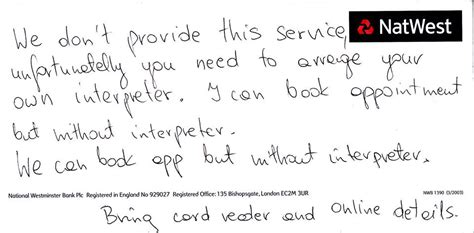 We don't provide this service,
NatWest
unfortunatelly you need to arrange your
own interpreter. I can book appointment
but without interpreter.
We can book app but without interpreter.
National Westminster Bank Plc Registered in England No 929027 Registered Office: 135 Bishopsgate, London EC2M 3UR
NWB 1390 (3/2003)
Bring card reader and online details.